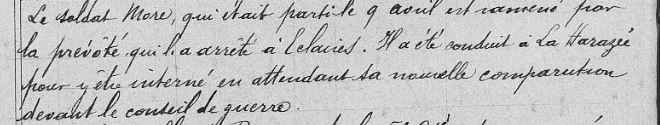 Le soldat More, qui était parti le 9 avril est ramené par
la prévôté qui l'a arrêté à Eclaires. Il a été conduit à La Harazée
pour y être interné en attendant sa nouvelle comparution
devant le conseil de guerre.